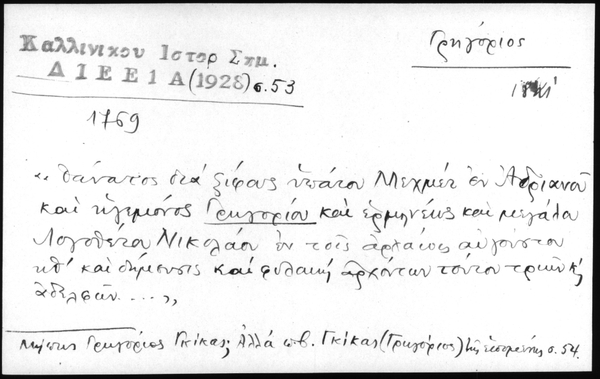 Γρηγόριος
Καλλινικου Ιστορ Σημ.
ΔΙΕΕ1Α(1928) σ.53
1769
"θάνατος διά ξίφους ὑπάτου Μεχμέτ ἐν Ἀδριανου
καί ἡγεμόνος Γρηγορίου καί ἑρμηνέως καί μεγάλου
Λογοθέτου Νικολάου ἐν τοῖς αὐγούστου
κθ' καί δήμευσις καί φυλακή ἀρχόντων τούτου τριῶν κ'
ἀδελφῶν....,,
Μήπως Γρηγόριος Γκίκας; Ἀλλά Γκίκας (Γρηγόριος) σ. 54.